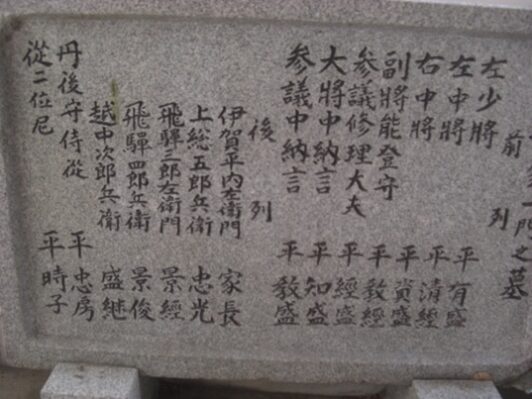 一門之墓
前 列
左少將 平 有盛
左中將 平 清經
右中將 平 資盛
副將能登守 平 教經
参議修理大夫 平 經盛
大將中納言 平 知盛
参議中納言 平 教盛
後 列
伊賀平内左衛門 家長
上総五郎兵衛 忠光
飛騨三郎左衛門 景經
飛騨四郎兵衛 景俊
越中次郎兵衛 盛継
丹後守侍從 平 忠房
從二位尼 平 時子